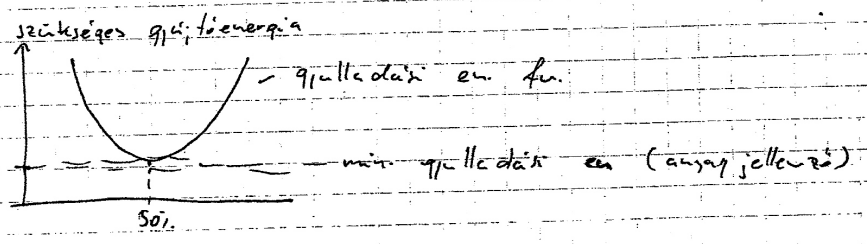 szükséges gyújtóenergia
gyulladási en. fv.
min. gyulladási en (anyag jellemző)
50%.